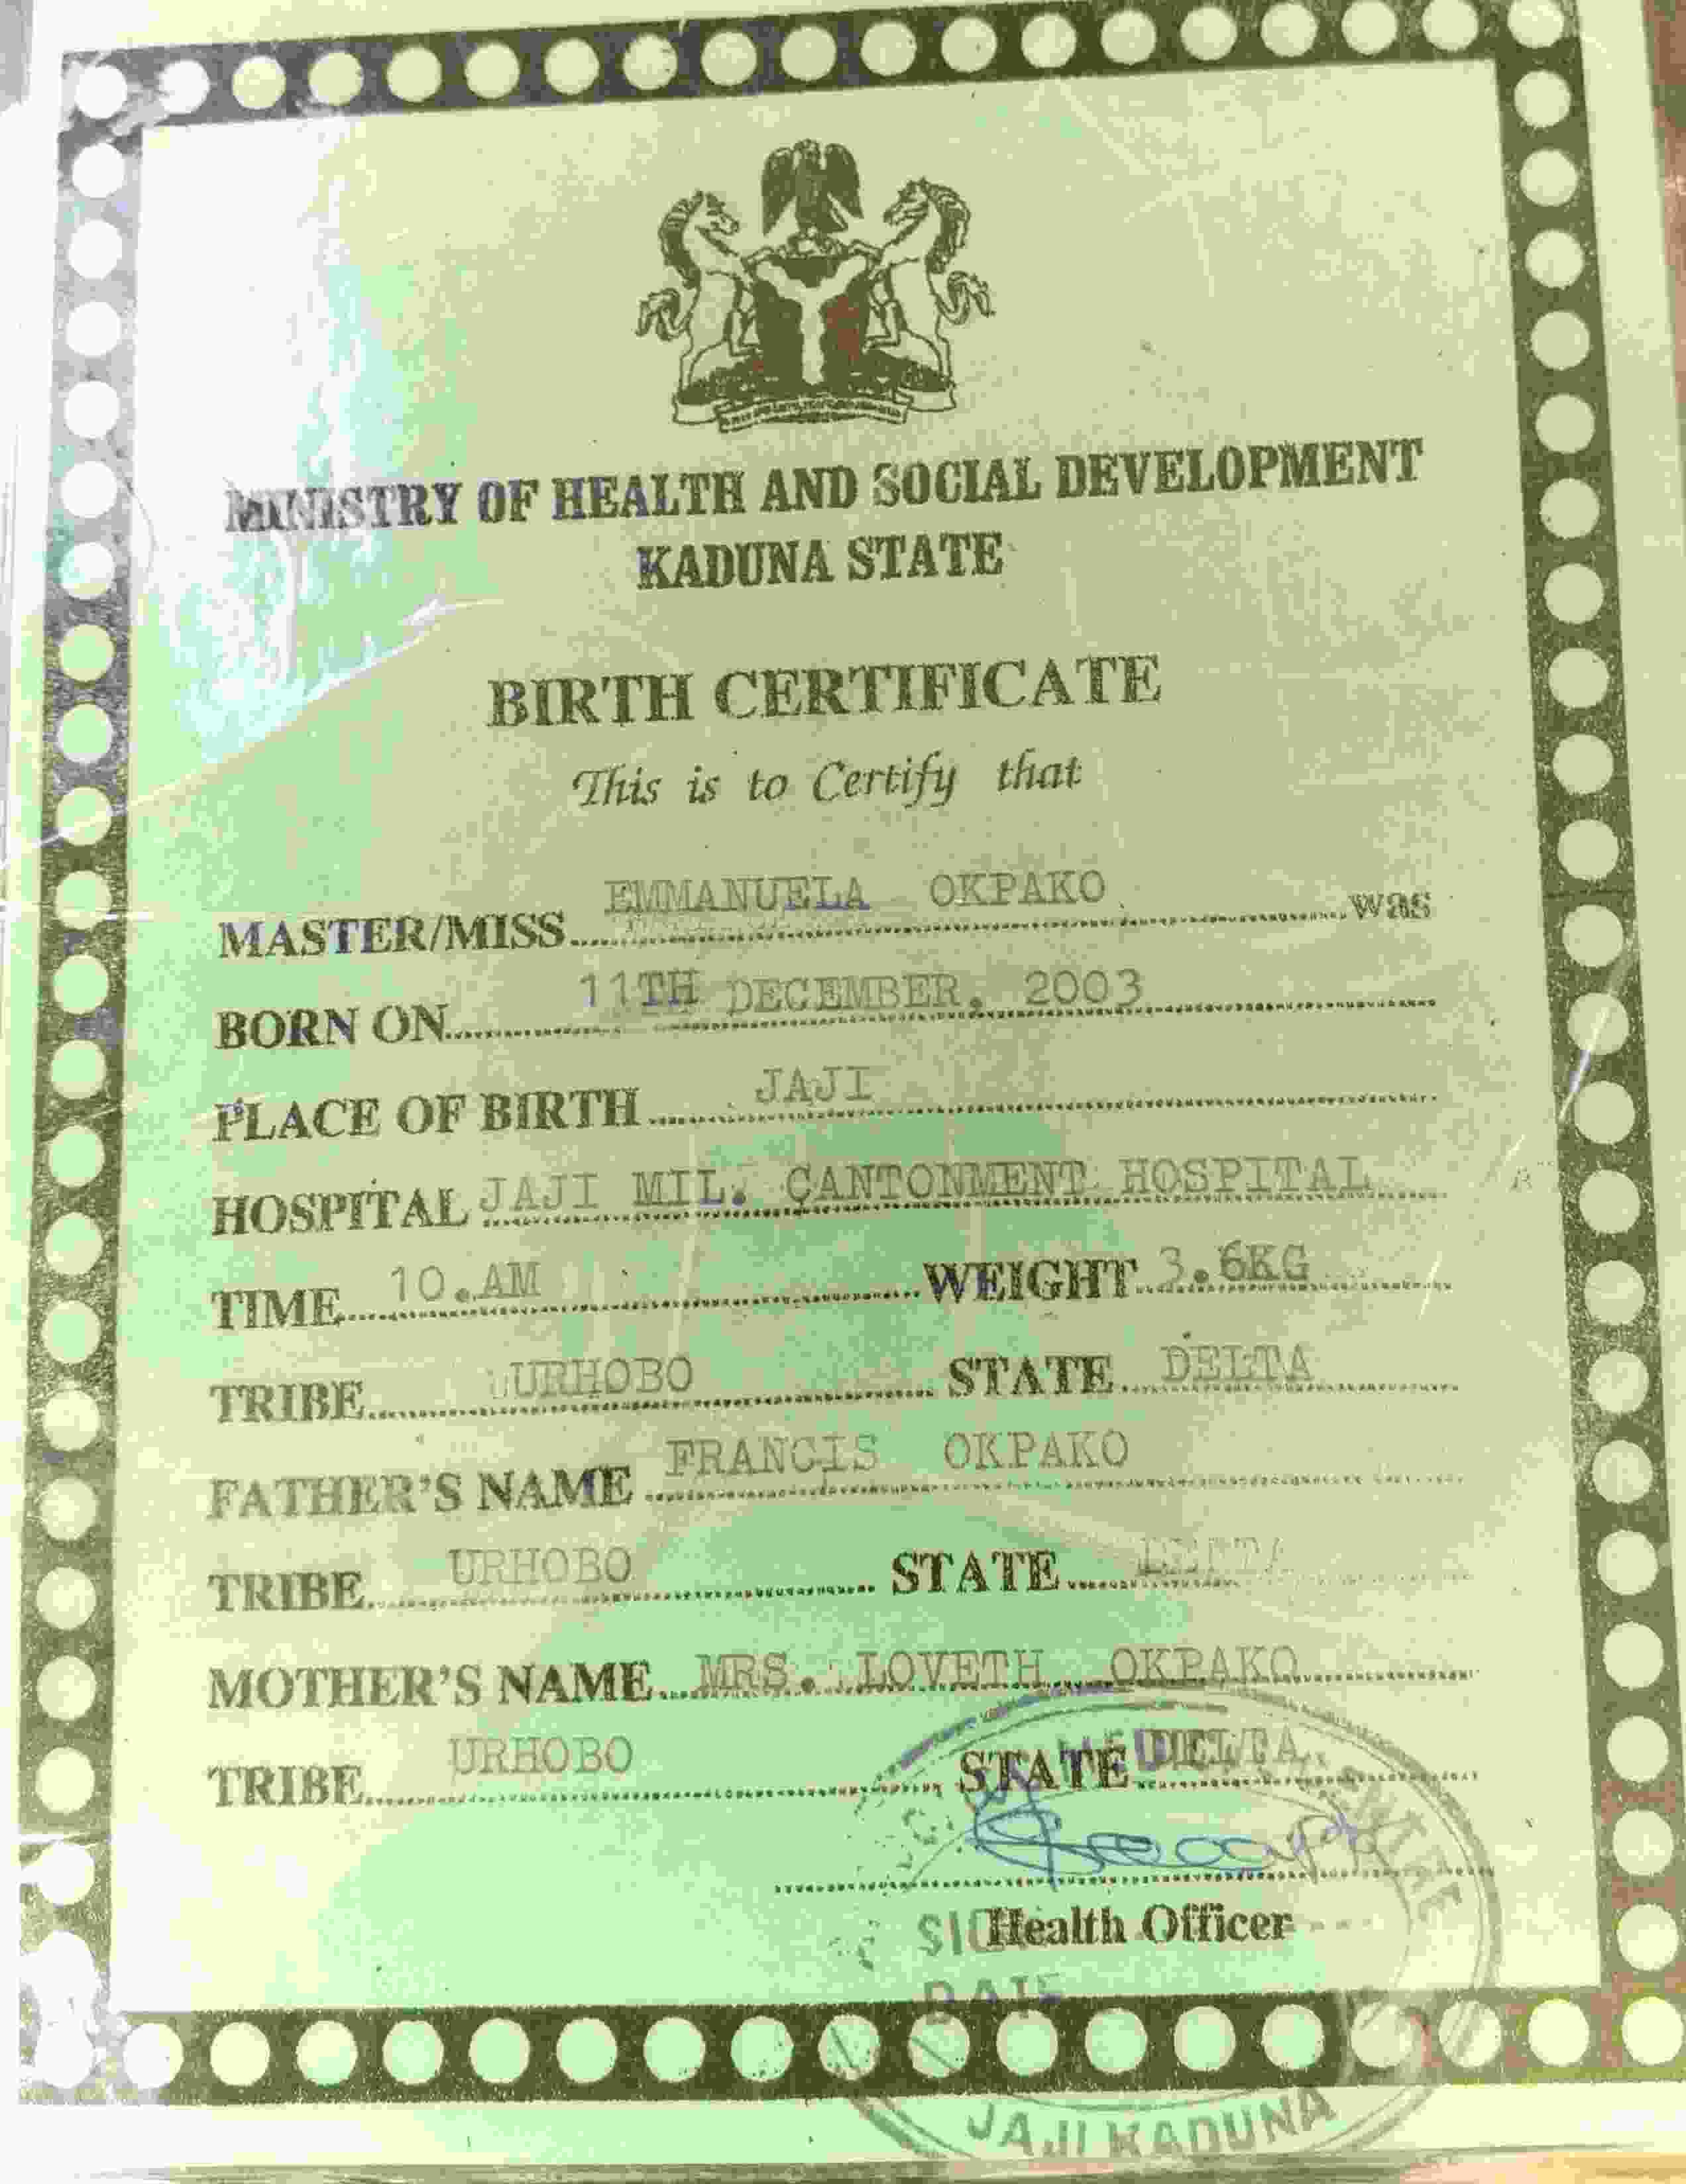 MINISTRY OF HEALTH AND SOCIAL DEVELOPMENT
KADUNA STATE
BIRTH CERTIFICATE
This is to Certify that
MASTER/MISS EMMANUELA OKPAKO was
BORN ON 11TH DECEMBER. 2003
PLACE OF BIRTH JAJI
HOSPITAL JAJI MIL. CANTONMENT HOSPITAL
TIME 10.AM WEIGHT 3.6KG
TRIBE URHOBO STATE DELTA
FATHER'S NAME FRANCIS OKPAKO
TRIBE URHOBO STATE DELTA
MOTHER'S NAME MRS. LOVETH OKPAKO
TRIBE URHOBO STATE DELTA
Health Officer
DATE
JAJI KADUNA